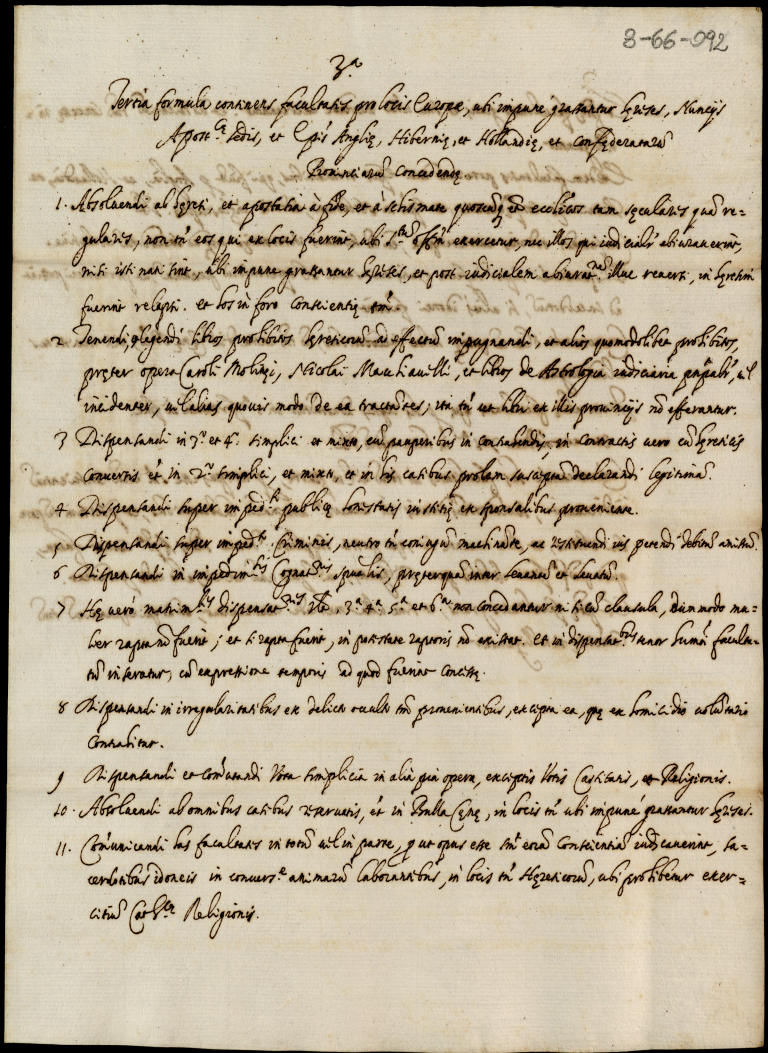 8-66-092
3.ª
Tertia formula continens facultates pro locis Europæ, ubi impune grassantur hęreses, Nuncijs
Apost.cę sedis, et Ep̃is Anglię, Hibernię, et Hollandię, et Confęderatarũ
Prouinciarũ Concedendę
1. Absoluendi ab hęresi, et apostasia à fide, et à schismate quoscunq; et̃ eccl̃icos tam sęculares quã re=
gulares, non tñ eos qui ex locis fuerint, ubi S.tũ off.m exercetur, nec illos qui iudicialr̃ abiurauerint,
nisi isti nati sint, ubi impune grassantur hęreses, et post iudicialem abiurat.nẽ illuc reuersi, in hęresim
fuerint relapsi. et hos in foro Conscientię tm̃.
2 Tenendi, et legendi libros prohibitos hęreticorũ ad effectum impugnandi, et alios quomodolibet prohibitos,
pręter opera Caroli Molinęi, Nicolai Machiauelli, et libros de Astrologia iudiciaria principalr̃, uel
incidenter, uel alias quouis modo de ea tractãtes; ita tñ ut libri ex illis prouincijs nõ efferantur.
3 Dispensandi in 3.º et 4.º simplici et mixto, cũ pauperibus in contrahendis, in contractis uero cũ hęreticis
conuersis et̃ in 2.º simplici, et mixto, et in his casibus prolem susceptã declarandi legitimã.
4 Dispensandi super imped.to publicę honestatis iustitię ex sponsalibus proueniente.
5 Dispensandi super imped.to Criminis, neutro tñ coniugũ machinãte, ac restituendi ius petendi debitũ amissũ.
6 Dispensandi in impedim.tis Cognat.nis spũalis, pręterquã inter leuantẽ et leuatũ.
7 Hę uerò matrim.les dispensat.nes vz̃. 3.ª 4.ª 5.ª et 6.ª non concedantur nisi cũ clausula, dummodo mu=
lier rapta nõ fuerit; et si rapta fuerit, in potestate raptoris nõ existat. et in dispensat.bus tenor hum̃oi faculta=
tũ inseratur, cũ expressione temporis ad quod fuerint concessę.
8 Dispensandi in irregularitatibus ex delicto occulto tm̃ prouenientibus, excepta ea, quę ex homicidio uolũtario
contrahitur.
9 Dispensandi et com̃utandi Vota simplicia in alia pia opera, exceptis Votis Castitatis, et Religionis.
10. Absoluendi ab omnibus casibus reseruatis, et̃ in Bulla Cęnę, in locis tñ ubi impunè grassantur hęreses.
11. Com̃unicandi has facultates in totũ uel in parte, prout opus esse sm̃ eorũ conscientiã iudicauerint, sa=
cerdotibus idoneis in conuers.e animarũ laborantibus, in locis tñ Hęreticorũ, ubi prohibetur exer=
citiũ Cath.cę Religionis.